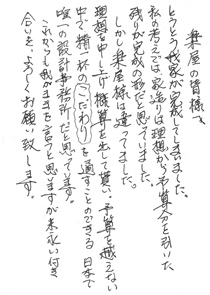 楽屋の皆様へ
とうとう我家が完成してしまいました。
私の考えでは、家造りは理想から予算分を引いた
残りが完成の形だと思っていました。
しかし楽屋様は違ってました。
理想を申し上げ概算を出して貰い、予算を越えない
中で精一杯の「こだわり」を通すことのできる日本で
唯一の設計事務所だと思っています。
これからも我がままを言うと思いますが末永い付き
合いを、よろしくお願い致します。